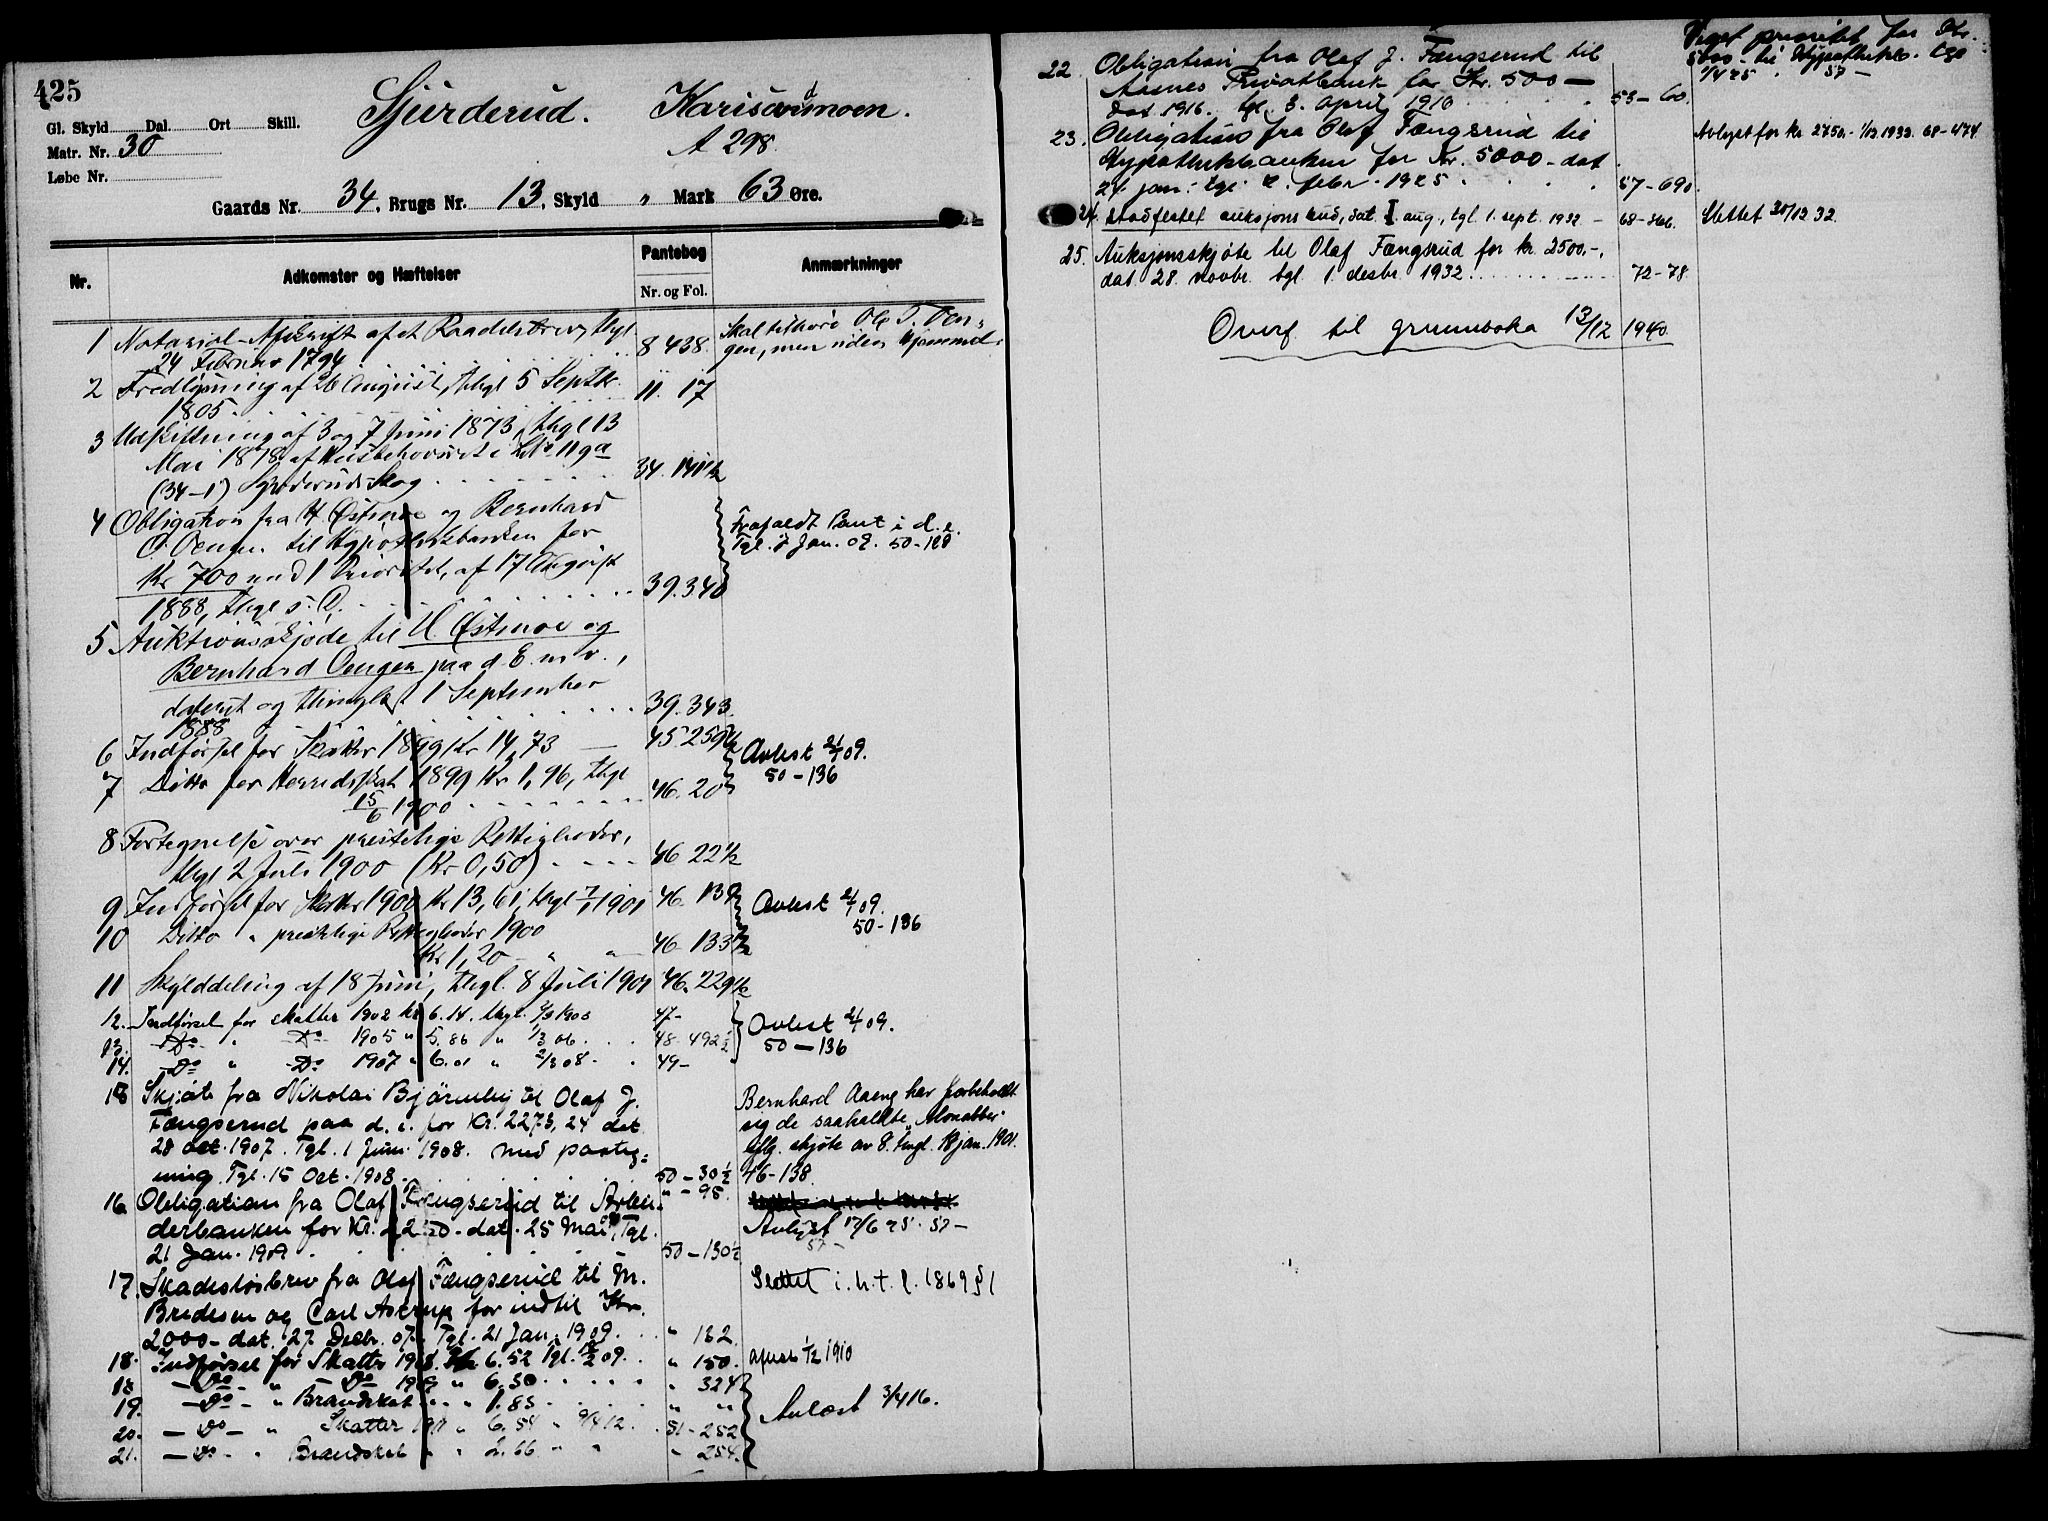 425
Gl. Skyld Dal. Ort Skill.
Matr. Nr. 30
Løbe Nr.
Sjurderud.
A 298.
Gaards Nr. 34, Brugs Nr. 13, Skyld " Mark 63 Øre.
Nr.
Adkomster og Hæftelser
Pantebog
Nr. og Fol.
Anmærkninger
1 Notarial-Afskrift af et
24 Februar 1794
8 438.
Skal tilhøre Ole
gen, men uden Hjemmel.
2 Fredlysning af 26 August, thgl 5 Septbr.
1805
11. 17
3 Udskiftning af 3 og 7 Juni 1873, thgl 13
Mai 1878 af
(34-1) Sjurderudskog
34. 141½
4 Obligation fra H. Østmoe og Bernhard
O. Oengen til Hypothekbanken for
Kr 700 med 1 Prioritet, af 17 August
1888, thgl s. D.
39.340
Frafaldt Pant i d. e.
Tgl. 7 Jan. 09. 50-129
5 Auktionsskjøde til H. Østmoe og
Bernhard Oengen paa d. E. m v.,
dateret og thinglæst 1 September
1888
39.343.
6 Indførsel for Skatter 1899 Kr 14,73
45.259½
Avlæst 21/1 09.
50-136
7 Ditto for Herredsskat 1899 Kr 1,96, thgl
15/6 1900
46.20
8 Fortegnelse over præstelige Rettigheder,
thgl 2 Juli 1900 (Kr 0,50)
46 22½
9 Indførsel for Skatter 1900 Kr 13,61, thgl 7/1 1901
46. 132
Avlæst 21/1 09.
50-136
10 Ditto " præstelige Rettigheder 1900
Kr 1,20 " "
46-133½
11 Skylddeling af 18 Juni, thgl. 8 Juli 1901
46.229½
12. Indførsel for skatter 1902 kr 6.14. thgl. 1/3 1903
47-
Avlest 21/1 09.
50-136
13. Do " Do 1905 " 5.86 " 1/3 06
48-492½
14. Do " Do 1907 " 6.01 " 2/3 08
49-
15 Skjøte fra Nikolai Bjørneby til Olaf J.
Fængserud paa d. e. for Kr. 2273,24 dat
28 oct. 1907. Tgl. 1 Juni 1908. med paateg=
ning Tgl. 15 Oct. 1908.
50-30½
"-95
Bernhard Aaeng har forbeholdt
sig de saakaldte
iflg. skjøte av 8. tingl. 18 jan. 1901.
46-138.
16 Obligation fra Olaf Fængserud til Arbei-
derbanken for Kr. 2250.- dat. 25 Mai, Tgl.
21 Jan. 1909
50-130½
Avlyst 17/6 25. 57-
57-
17. Skadesløsbrev fra Olaf Fængserud til M.
Bredesen og Carl Astrup for indtil Kr.
2000- dat. 27 Decbr. 07. Tgl. 21 Jan. 1909.
" 132
Slettet i. h. t. l. 1869 § 1
18. Indførsel for Skatter 1908. Kr 6.52 Tgl. 12/2 09.
" 150.
1/12 1910
18 - Do - " Do 1909 " 6.30
" 324
19. - Do - " Brandskat " " 1.83
" "
Avlæst 3/4 16.
20. - Do - " Skatter 1911 " 6.54 " 9/4 12.
51-252
21. - Do - " Brandskat " " 2.66 " "
" 254.
22. Obligation fra Olaf J. Fængserud til
Aasnes Privatbank for Kr. 500-
Dat 1916. tgl. 3. april 1916
53-60.
Veget prioritet for Kr.
5000.- til Hypothekbk. tgl
57-
23. Obligation fra Olaf Fængsrud til
Hypothekbanken for Kr. 5000- dat
24 jan. tgl. 2. febr. 1925
57-690
Avlyst for kr. 2750.- 1/12.1932. 68-474
24. Stadfestet auksjonsbud, dat. I aug., tgl. 1. sept. 1932
68-366.
Slettet 30/12 32.
25. Auksjonsskjøte til Olaf Fængsrud for kr 2500.-,
dat. 28. novbr. tgl. 1. desbr. 1932
72-78
Overf. til grunnboka 13/12 1940.